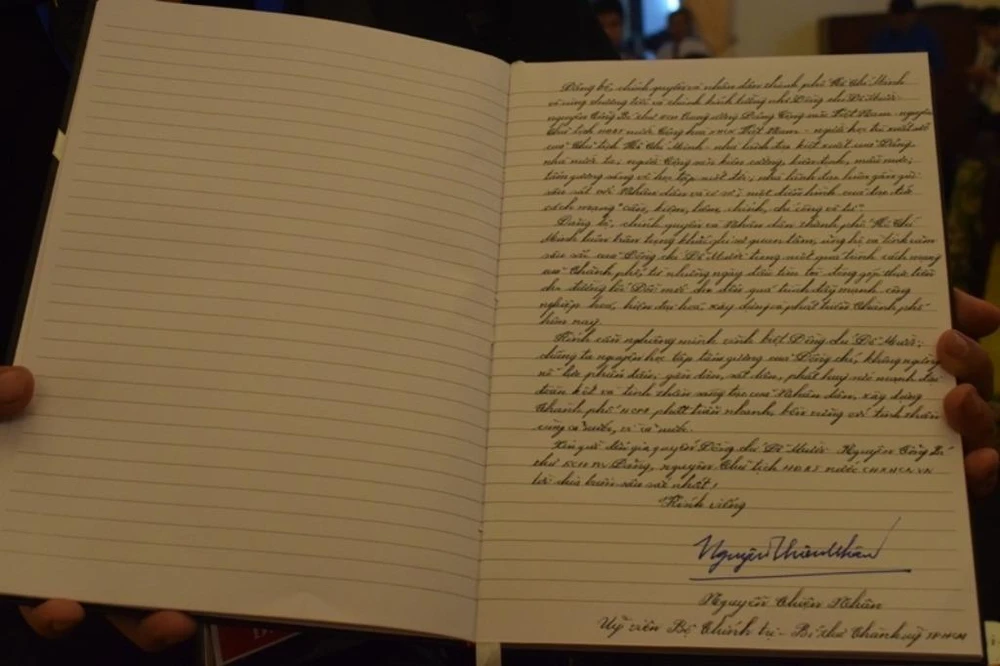 Đảng bộ, chính quyền và nhân dân thành phố Hồ Chí Minh
vô cùng thương tiếc và kính viếng Đồng chí Đỗ Mười -
nguyên Tổng Bí thư BCH Trung ương Đảng Cộng sản Việt Nam - nguyên
Chủ tịch HĐBT nước Cộng hòa XHCN Việt Nam - người học trò xuất sắc
của Chủ tịch Hồ Chí Minh, nhà lãnh đạo kiệt xuất của Đảng,
nhà nước ta, người Cộng sản kiên cường, kiên trung, mẫu mực;
tấm gương sáng về học tập suốt đời; nhà lãnh đạo luôn gần gũi
sâu sát với Nhân dân và cơ sở; một điển hình của đạo đức
cách mạng "cần, kiệm, liêm, chính, chí công vô tư".
Đảng bộ, chính quyền và Nhân dân thành phố Hồ Chí
Minh luôn trân trọng khắc ghi sự quan tâm, ủng hộ và tình cảm
sâu sắc của Đồng chí Đỗ Mười trong suốt quá trình cách mạng
của Thành phố, từ những ngày đầu tìm tòi, đóng góp thực tiễn
cho đường lối Đổi mới cho đến quá trình đẩy mạnh công
nghiệp hóa, hiện đại hóa, xây dựng và phát triển Thành phố
hôm nay.
Kính cẩn nghiêng mình vĩnh biệt Đồng chí Đỗ Mười;
chúng ta nguyện học tập tấm gương của Đồng chí, không ngừng
nỗ lực phấn đấu; gần dân, sát dân, phát huy sức mạnh đại
đoàn kết và tinh thần sáng tạo của Nhân dân, xây dựng
Thành phố HCM phát triển nhanh, bền vững với tinh thần
cùng cả nước, vì cả nước.
Xin gửi đến gia quyến Đồng chí Đỗ Mười - Nguyên Tổng Bí
thư BCH TW Đảng, nguyên Chủ tịch HĐBT nước CHXHCN VN
lời chia buồn sâu sắc nhất!
Kính viếng
Nguyễn Thiện Nhân
Nguyễn Thiện Nhân
Uỷ viên Bộ Chính trị - Bí thư Thành uỷ TP HCM